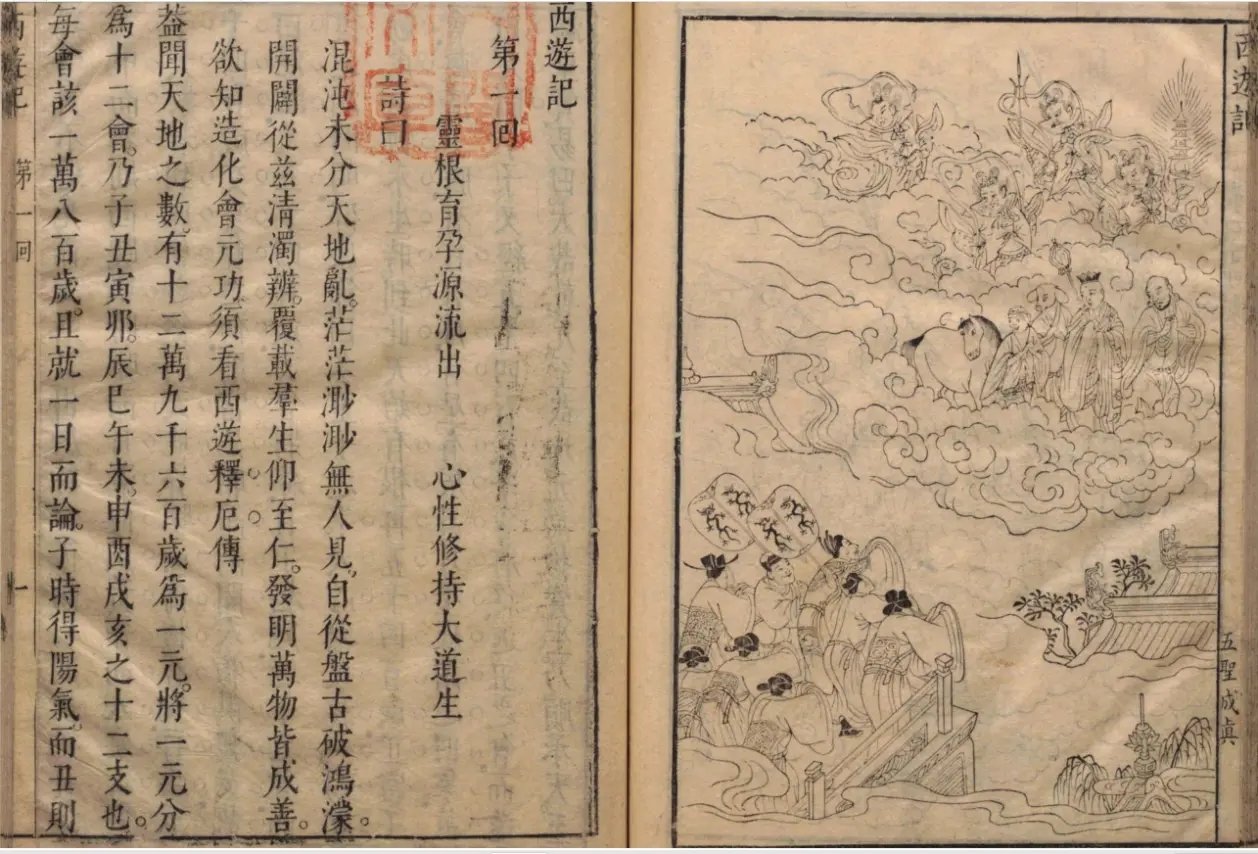 西遊記
五聖成眞
西遊記
第一回
靈根育孕源流出　心性修持大道生
詩曰
混沌未分天地亂。茫茫渺渺無人見。自從盤古破鴻濛。
開闢從茲清濁辨。覆載羣生仰至仁。發明萬物皆成善。
欲知造化會元功須看西遊釋厄傳
葢聞天地之數。有十二萬九千六百歲爲一元。將一元分
爲十二會。乃子丑寅夘。辰巳午未。申酉戌亥之十二支也。
每會該一萬八百歲。且就一日而論。子時得陽氣。而丑則
西遊記　第一回　一